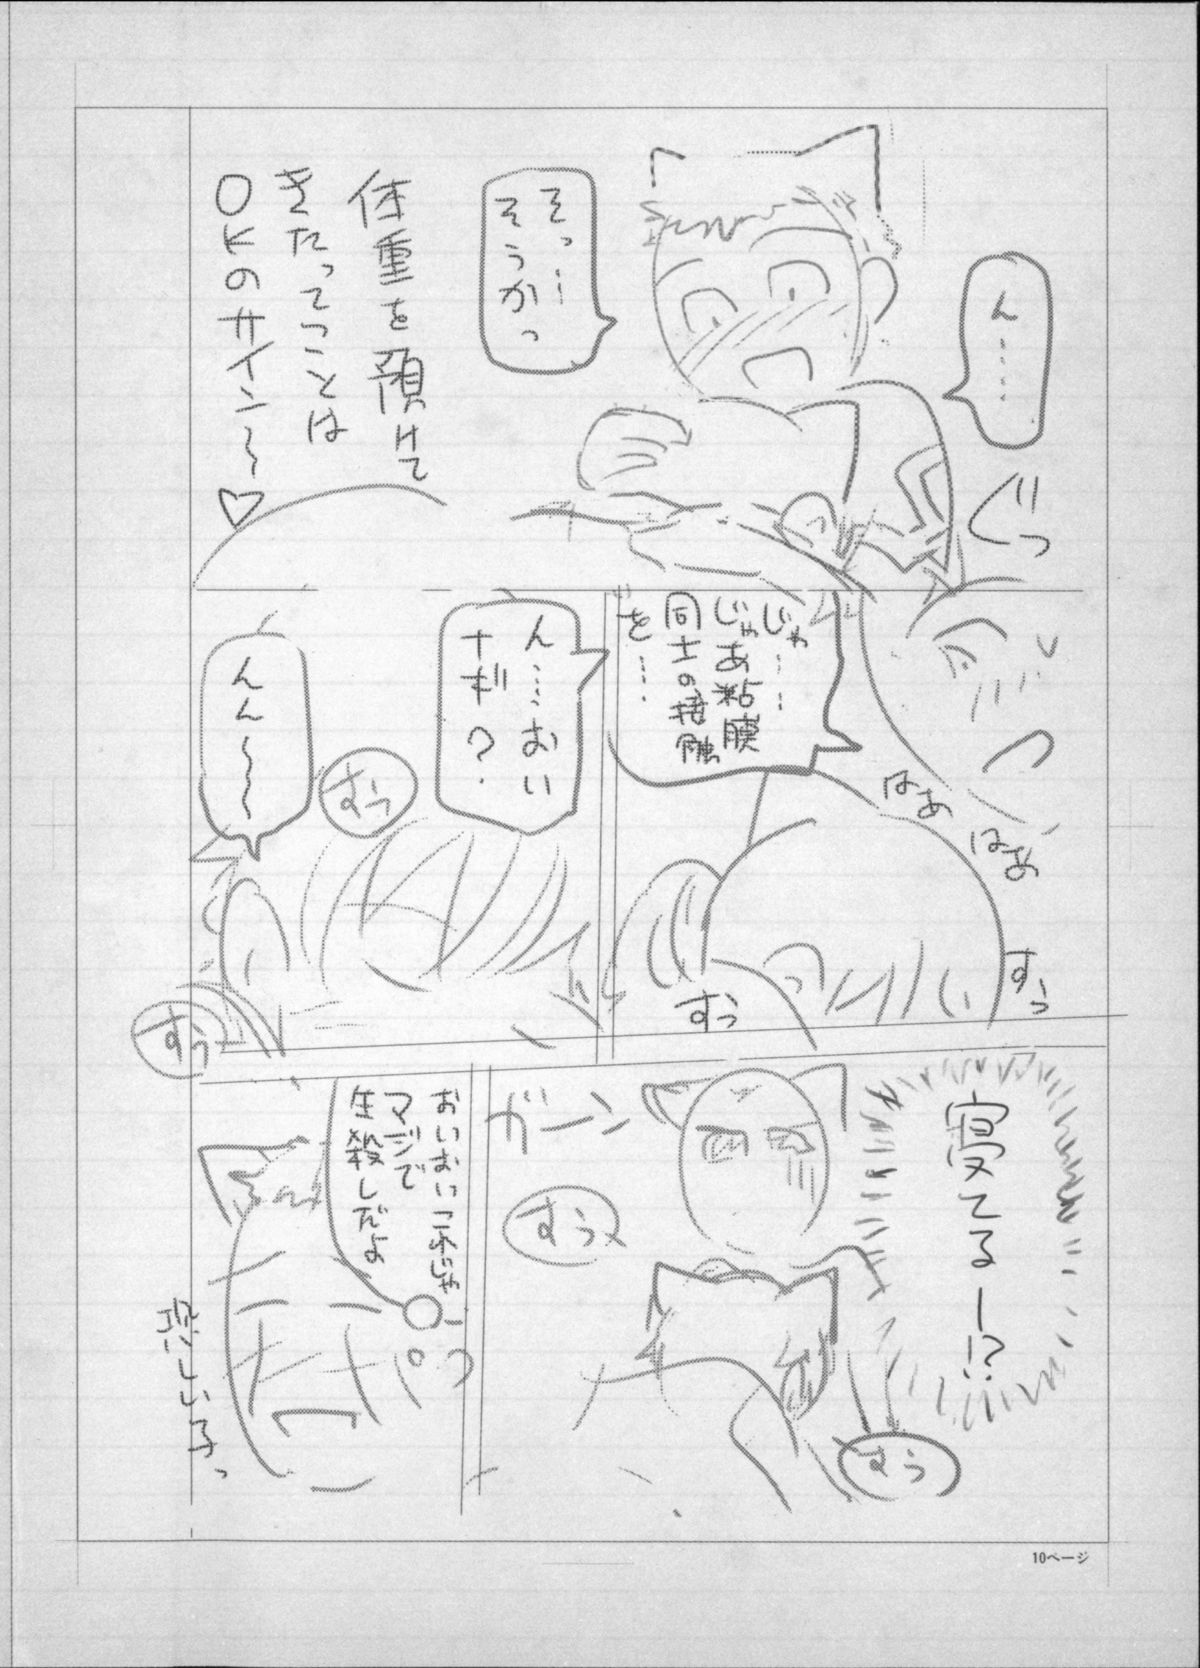 ん……
ぐっ
そっ……
そうかっ
体重を預けて
きたってことは
OKのサイン〜♡
じゃ……
じゃあ粘膜
同士の接触
を……
はぁ
はぁ
すっ
すっ
ん……おい
ナギ?
すうっ
んん〜〜〜
すうっ
寝てるー!?
すうっ
ガーン
すうっ
おいおいこれじゃ
マジで
生殺しだよ
恐しい子っ
10ページ